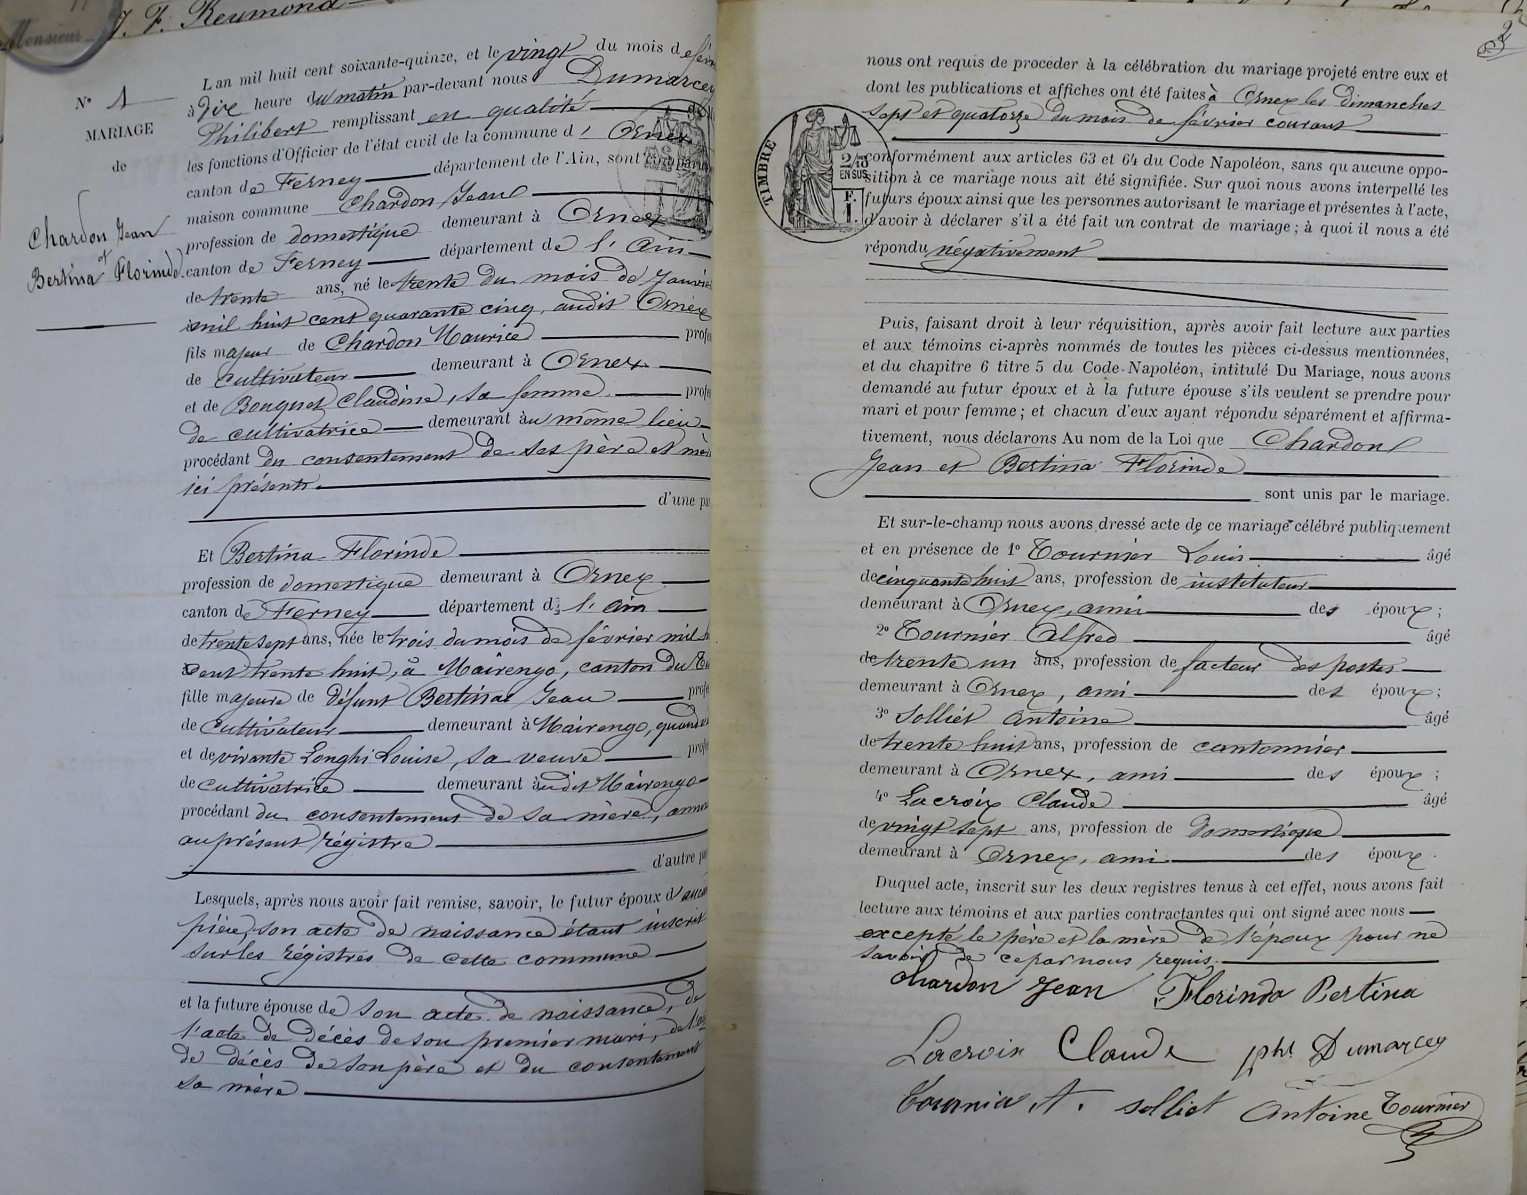 Monsieur J. F. Reumond
N° 1
MARIAGE
de
Chardon Jean
et
Bertina Florinde.
L'an mil huit cent soixante-quinze, et le vingt du mois de
à dix heure du matin par-devant nous Dumarcey
Philibert remplissant en qualité
les fonctions d'Officier de l'état civil de la commune d' Ornex
canton de Ferney département de l'Ain, sont
maison commune Chardon Jean
profession de domestique demeurant à Ornex
canton de Ferney département de l'Ain
de trente ans, né le trente du mois de Janvier
mil huit cent quarante cinq, audit Ornex
fils majeur de Chardon Maurice
de cultivateur demeurant à Ornex
et de Bouquet Claudine, sa femme
de cultivatrice demeurant au même lieu
procédant du consentement de ses père et mère
ici présents.
d'une
Et Bertina Florinde
profession de domestique demeurant à Ornex
canton de Ferney département de l'Ain
de trente sept ans, née le trois du mois de février mil
cent trente huit, à Mairengo, canton du
fille majeure de défunt Bertina Jean
de cultivateur demeurant à Mairengo, quand
et de vivante Longhi Louise, sa veuve
de cultivatrice demeurant audit Mairengo
procédant du consentement de sa mère,
au présent régistre
d'autre
Lesquels, après nous avoir fait remise, savoir, le futur époux d'aucune
pièce, son acte de naissance étant inscrit
sur les régistres de cette commune
et la future épouse de son acte de naissance, de
l'acte de décès de son premier mari, de
de décès de son père et du consentement
sa mère
2
nous ont requis de proceder à la célébration du mariage projeté entre eux et
dont les publications et affiches ont été faites à Ornex les dimanches
sept et quatorze du mois de février courant
TIMBRE
2/10
EN SUS
F.
1.
conformément aux articles 63 et 64 du Code Napoléon, sans qu aucune oppo-
sition à ce mariage nous ait été signifiée. Sur quoi nous avons interpellé les
futurs époux ainsi que les personnes autorisant le mariage et présentes à l'acte,
d'avoir à déclarer s'il a été fait un contrat de mariage; à quoi il nous a été
répondu négativement
Puis, faisant droit à leur réquisition, après avoir fait lecture aux parties
et aux témoins ci-après nommés de toutes les pièces ci-dessus mentionnées,
et du chapitre 6 titre 5 du Code Napoléon, intitulé Du Mariage, nous avons
demandé au futur époux et à la future épouse s'ils veulent se prendre pour
mari et pour femme; et chacun d'eux ayant répondu séparément et affirma-
tivement, nous déclarons Au nom de la Loi que Chardon
Jean et Bertina Florinde
sont unis par le mariage.
Et sur-le-champ nous avons dressé acte de ce mariage célébré publiquement
et en présence de 1° Tournier Louis âgé
de cinquante huit ans, profession de instituteur
demeurant à Ornex, ami des époux;
2° Tournier Alfred âgé
de trente un ans, profession de facteur des postes
demeurant à Ornex, ami des époux;
3° Solliet Antoine âgé
de trente huit ans, profession de cantonnier
demeurant à Ornex, ami des époux;
4° Lacroix Claude âgé
de vingt sept ans, profession de domestique
demeurant à Ornex, ami des époux.
Duquel acte, inscrit sur les deux registres tenus à cet effet, nous avons fait
lecture aux témoins et aux parties contractantes qui ont signé avec nous
excepté le père et la mère de l'époux pour ne
savoir de ce par nous requis.
chardon Jean Florinda Bertina
Lacroix Claude Pht Dumarcey
Tournier A. Solliet Antoine Tournier